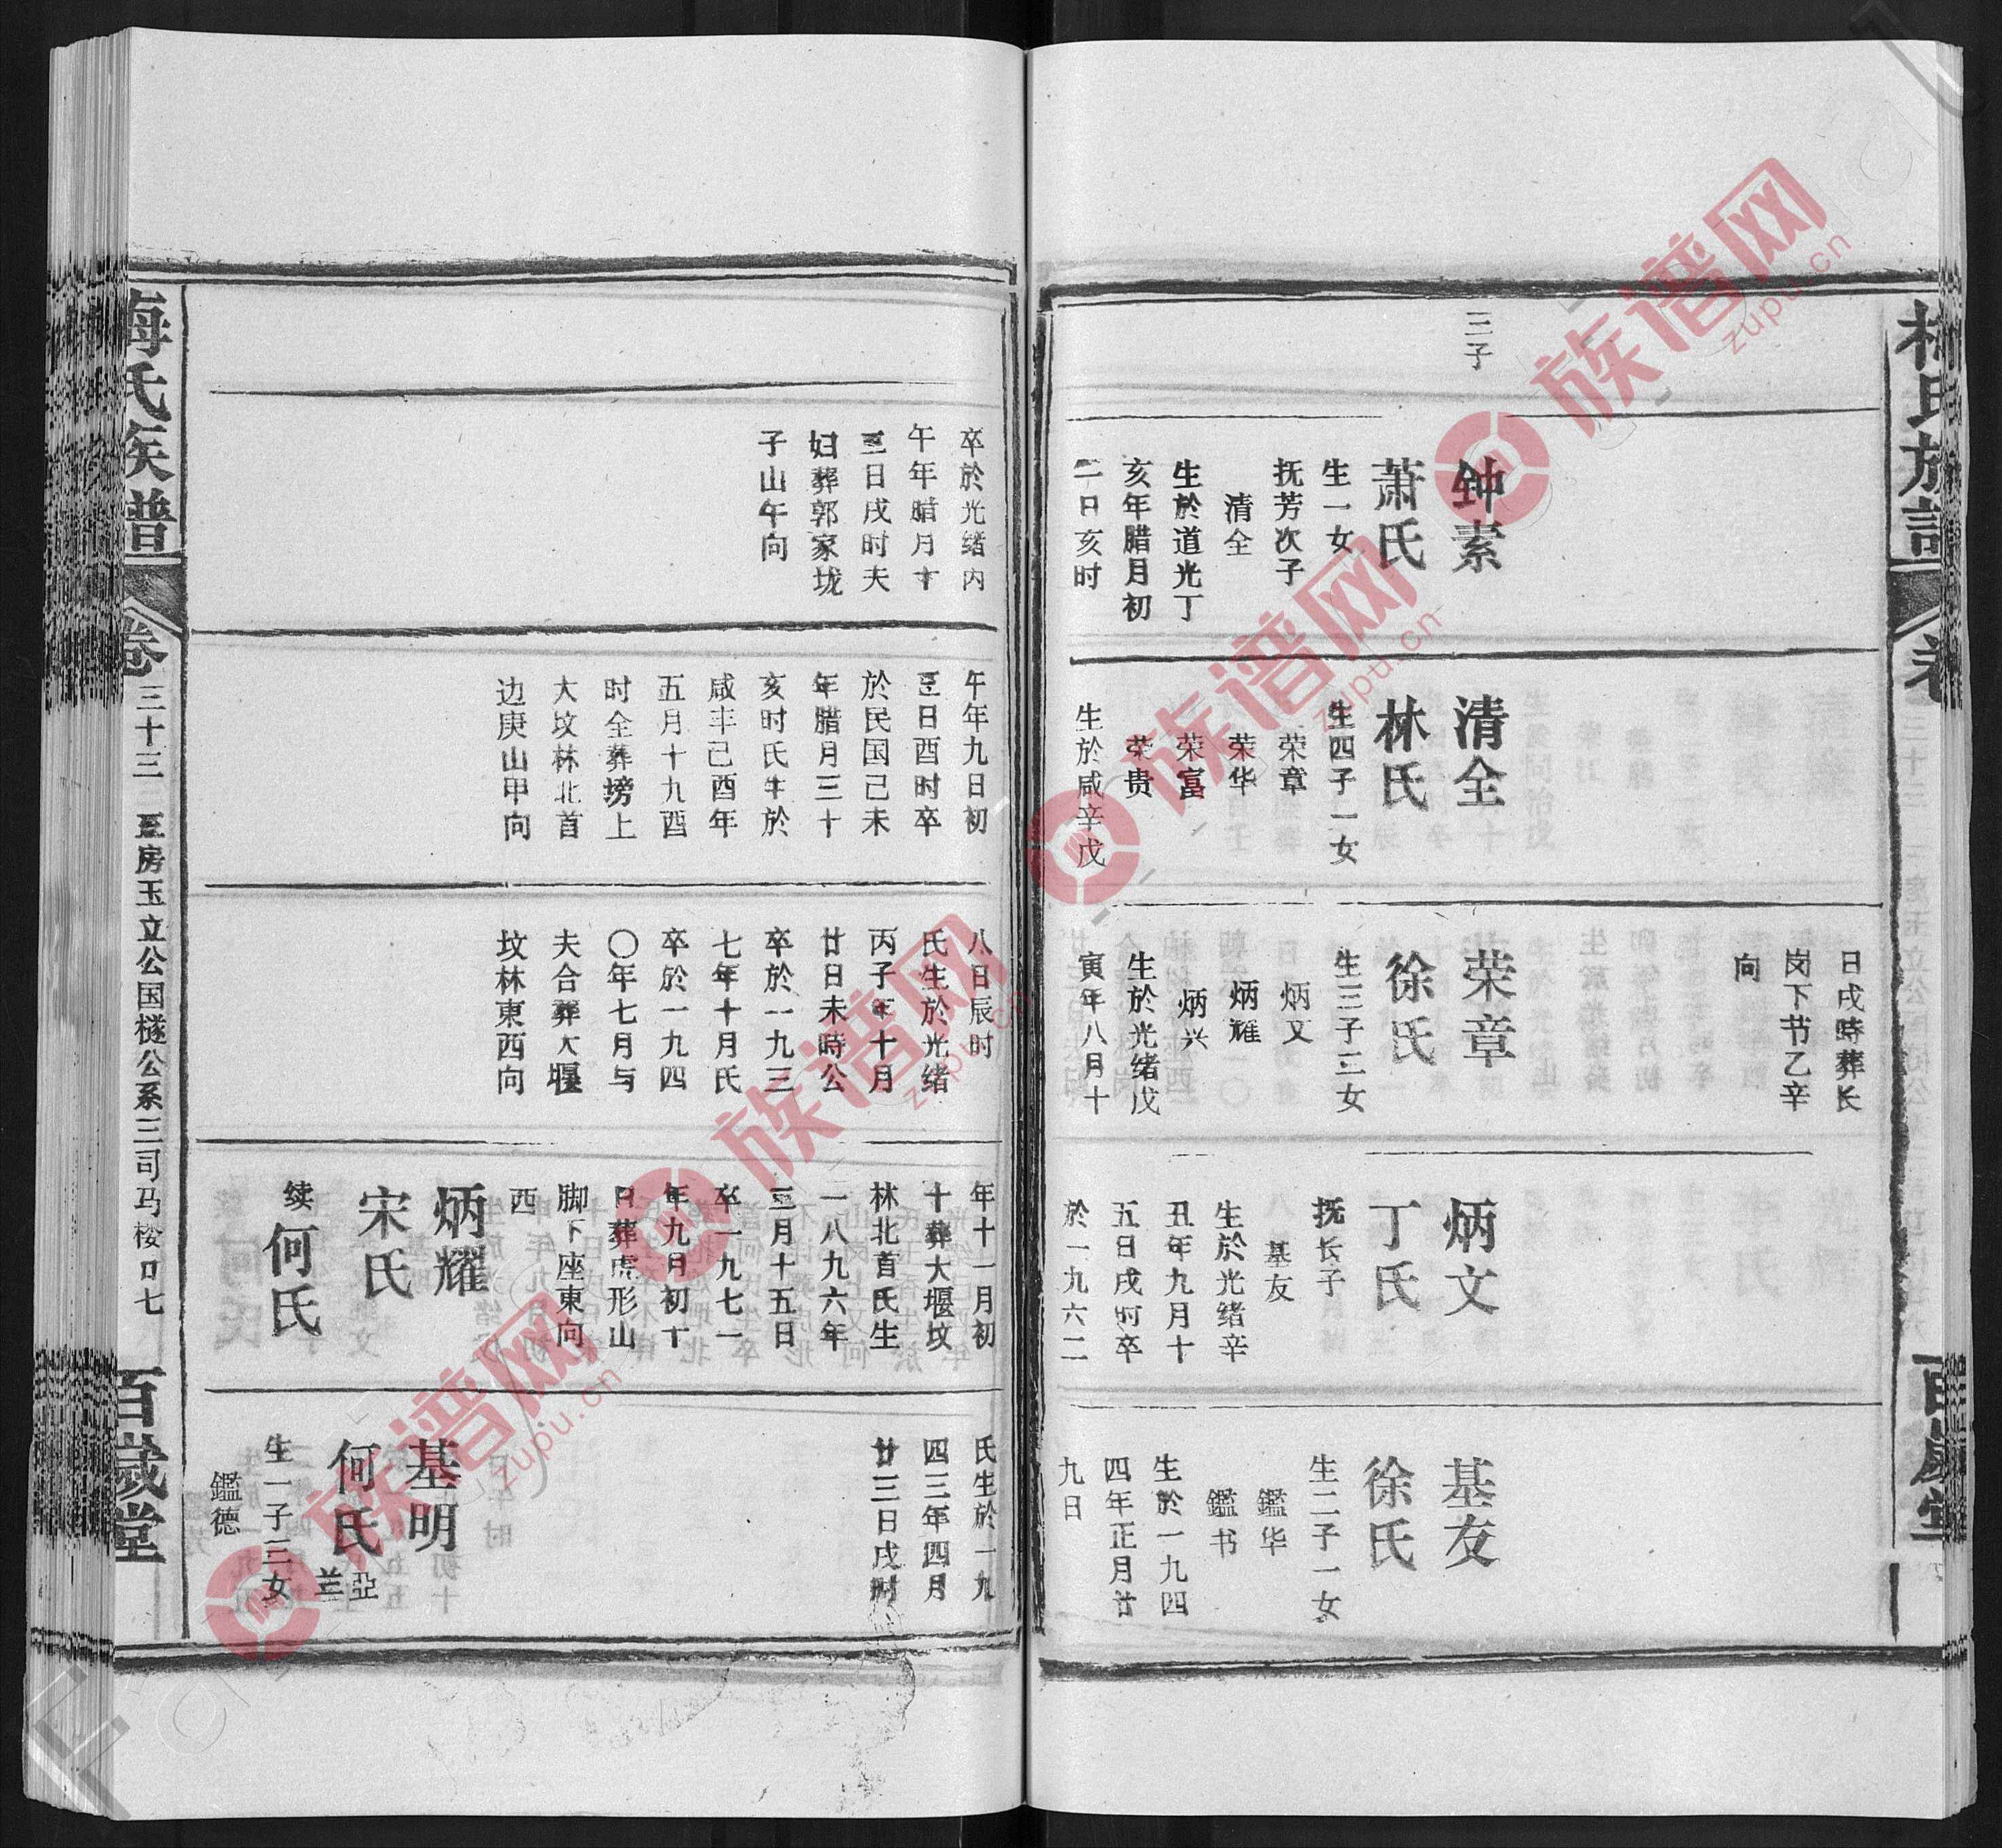 三子
钟素
萧氏
生一女
抚芳次子
清全
生於道光丁
亥年腊月初
二日亥时
清全
林氏
生四子一女
荣章
荣华
荣富
荣贵
生於咸辛戊
日戌時葬长
岗下节乙辛
向
荣章
徐氏
生三子三女
炳文
炳耀
炳兴
生於光绪戊
寅年八月十
炳文
丁氏
抚长子
基友
生於光绪辛
丑年九月十
五日戌时卒
於一九六二
基友
徐氏
生二子一女
鑑华
鑑书
生於一九四
四年正月廿
九日
卒於光绪内
午年腊月十
三日戌时夫
妇葬郭家垅
子山午向
午年九日初
三日酉时卒
於民国己未
年腊月三十
亥时氏生於
咸丰己酉年
五月十九酉
时全葬塝上
大坟林北首
边庚山甲向
八日辰时
氏生於光绪
丙子年十月
廿日未時公
卒於一九三
七年十月氏
卒於一九四
〇年七月与
夫合葬大堰
坟林東西向
年十一月初
十葬大堰坟
林北首氏生
一八九六年
三月十五日
卒一九七一
年九月初十
日葬虎形山
脚下座東向
西
炳耀
宋氏
续何氏
氏生於一九
四三年四月
廿三日戌时
基明
何氏亞兰
生一子三女
鑑德
梅氏族谱
卷三十三
三房玉立公国檖公系三司马楼口七
百歲堂
族谱网
zupu.cn
族谱网
zupu.cn
族谱网
zupu.cn
族谱网
zupu.cn